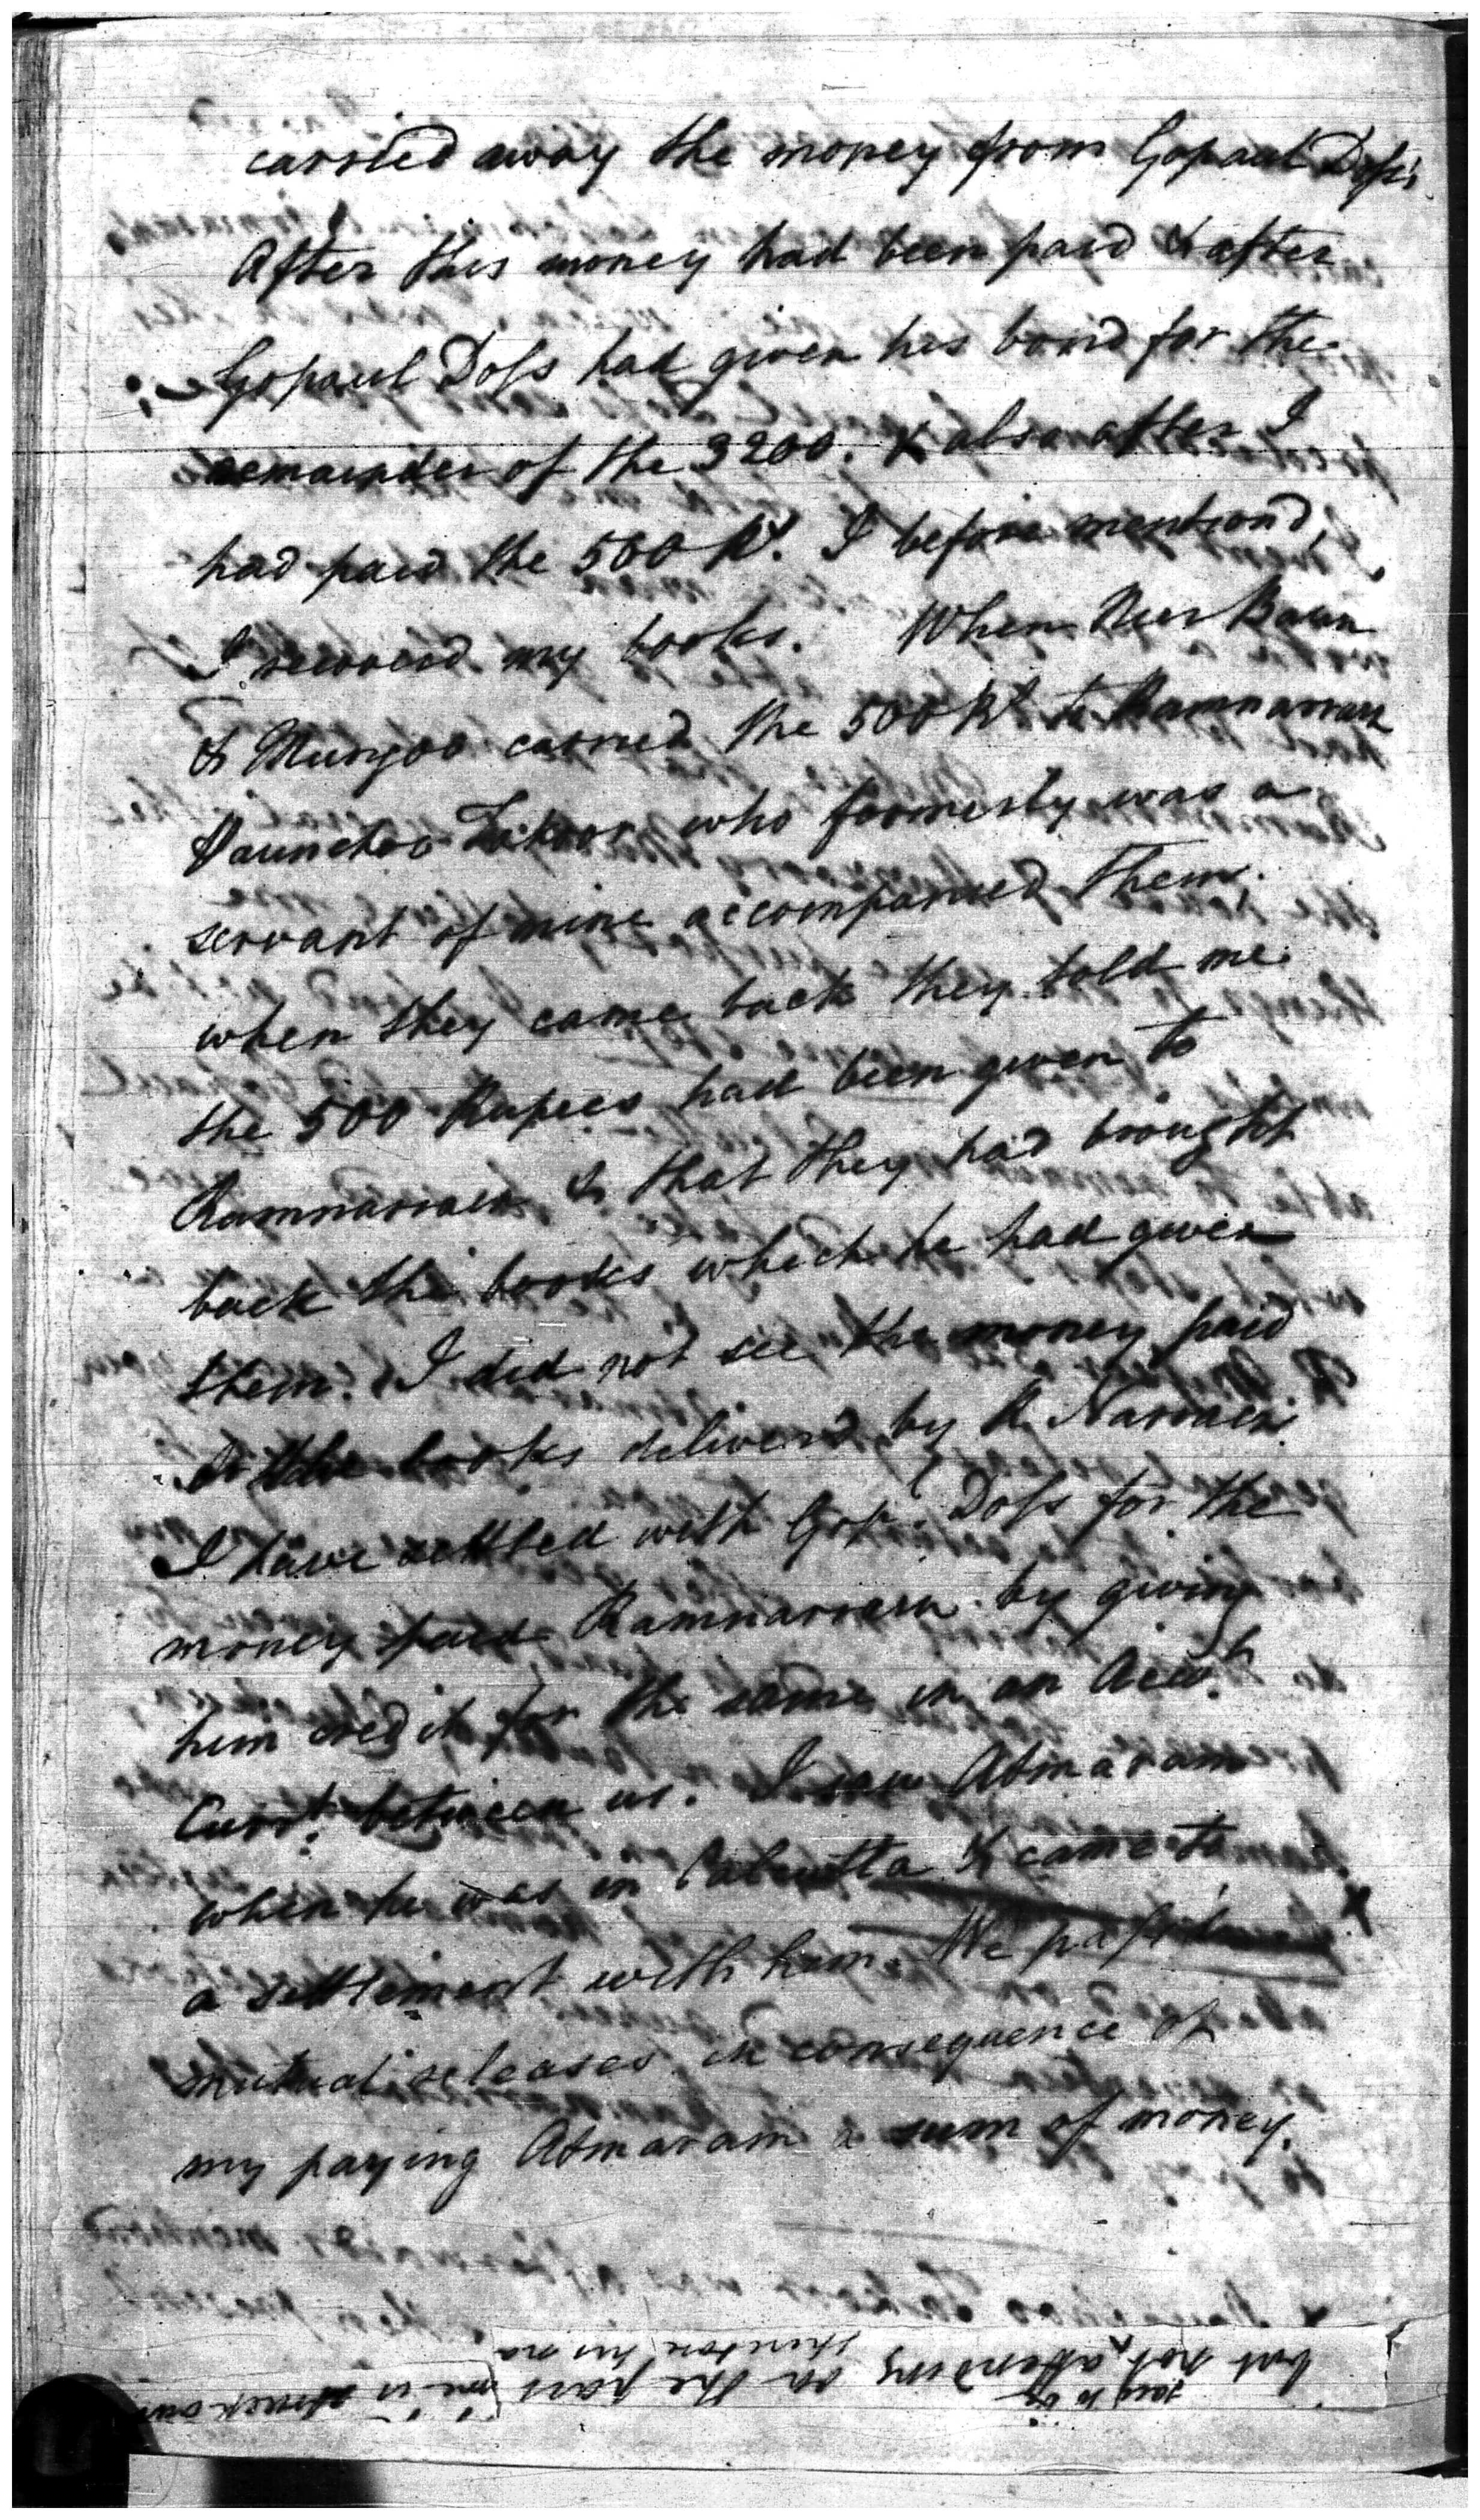 carried away the money from Gopaul Doss,
After this money had been paid & after
Gopaul Doss had given his bond for the
remainder of the 3200. & also after I
had paid the 500 Rs. I before mentiond,
I received my books. When
& Mungoo carried the 500 Rs to Ramnarrain
Paunchoo Takoor who formerly was a
servant of mine accompanied them.
when they came back they told me
the 500 Rupees had been given to
Ramnarrain & that they had brought
back the books which he had given
them. I did not see the money paid
or the books deliver'd by R. Narrain
I have settled with Gop. Doss for the
money paid Ramnarrain by giving
him credit for the same in an Acct
Currt. between us. I saw Atmaram
when he was in Calcutta & came to
a settlement with him. We pass'd
mutual releases in consequence of
my paying Atmaram a sum of money.
but not attending on the part